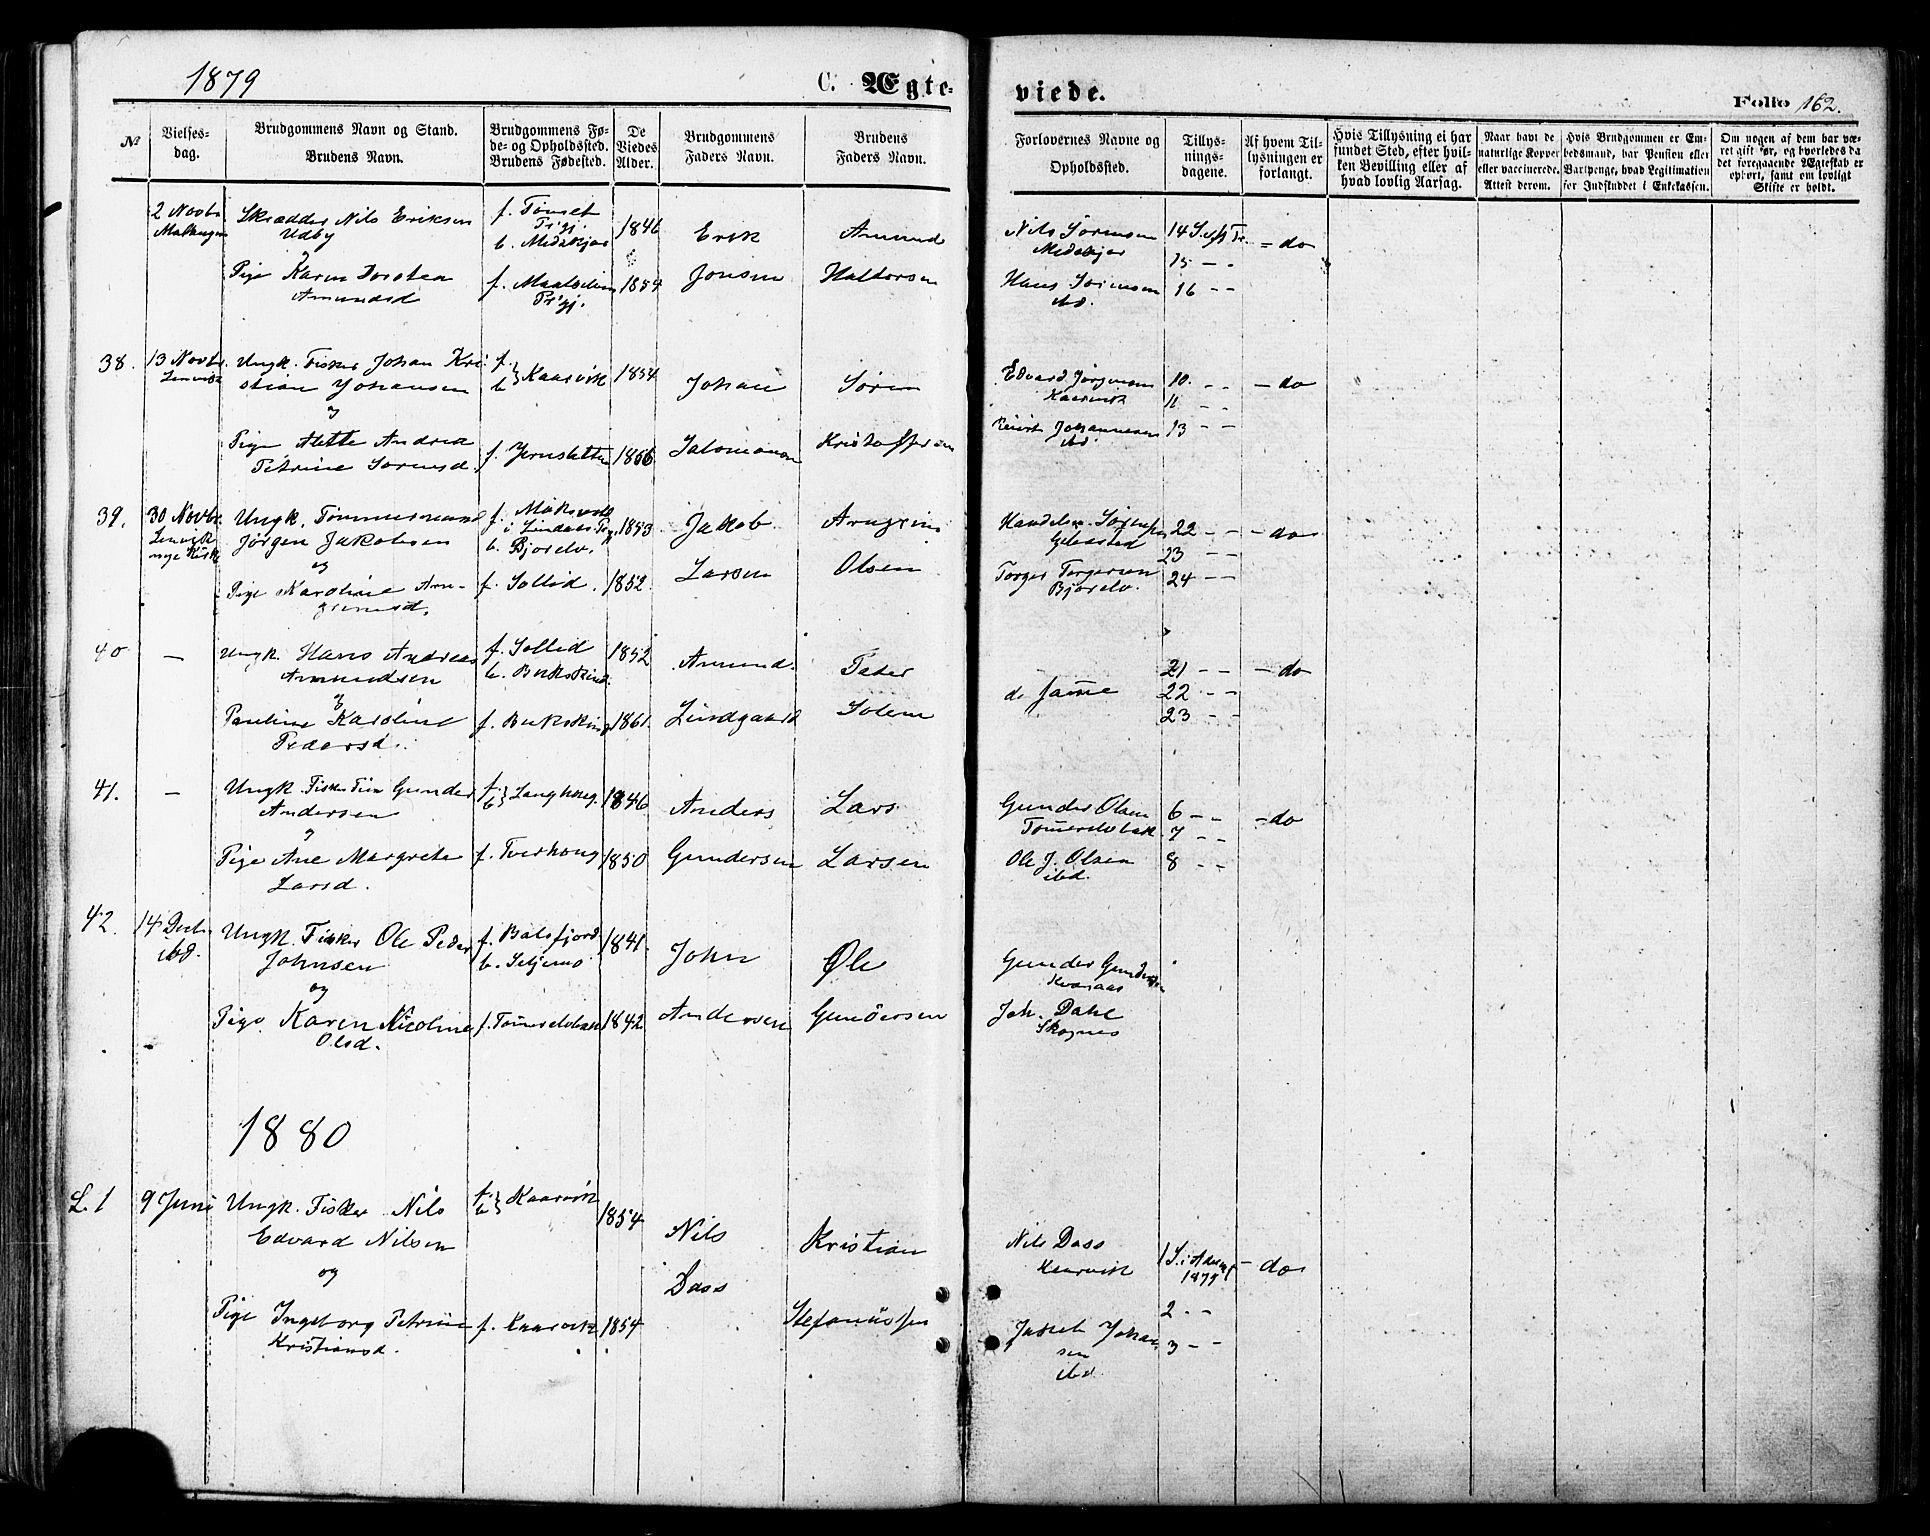 1879
C. Ægte-
viede.
Folio 162.
№
Vielses-
dag.
Brudgommens Navn og Stand.
Brudens Navn.
Brudgommens Fø-
de- og Opholdssted.
Brudens Fødested.
De
Viedes
Alder.
Brudgommens
Faders Navn.
Brudens
Faders Navn.
Forlovernes Navne og
Opholdssted.
Tillys-
nings-
dagene.
Af hvem Til-
lysningen er
forlangt.
Hvis Tillysning ei har
fundet Sted, efter hvil-
ken Bevilling eller af
hvad lovlig Aarsag.
Naar havt de
naturlige Kopper
eller vaccinerede.
Attest derom.
Hvis Brudgommen er Em-
bedsmand, har Pension eller
Vartpenge, hvad Legitimation
for Indskuddet i Enkekassen.
Om nogen af dem har væ-
ret gift før, og hvorledes da
det foregaaende Ægteskab er
ophørt, samt om lovligt
Skifte er holdt.
2 Novbr
Skrædder Nils Eriksen
Udby
Pige Karen Dorotea
Amundsd
f. Tönset
Prgj.
b. Medekjær
f. Maalselven
Prgj.
1846
1854
Erik
Jonsen
Amund
Haldorsen
Nils Sørensen
Medekjær
Hans Sørensen
ibd.
14 S. eft. Tr.
15 - -
16 - -
- do
38.
13 Novbr
Lenvik
Ungk. Fisker Johan Kri
stian Johansen
og
Pige Alette Andrea
Petrine Sörensd.
f.
b. } Kaarvik
f. Jernsletten
1854
1856
Johan
Salomonsen
Sören
Kristoffersen
Edvard Jörgensen
Kaarvik
Johannesen
ibd.
10. - -
11 - -
13 - -
- do
39.
30 Novbr.
Lenvik
nye Kirke
Ungk. Tömmermand
Jörgen Jakobsen
og
Pige Karoline Arn-
grimsd.
f.
i Lindaas Prgj.
b. Bjorelv.
f. Sollid.
1853
1852.
Jakob
Larsen
Arngrim
Olsen
Handelsm. Sørensen
Gibostad
Torger Torgersen
Bjorelv.
22 - -
23 - -
24 - -
- do
40
-
Ungk. Hans Andreas
Amundsen
og
Pauline Karoline
Pedersd.
f. Sollid
b. Bukskind.
f. Bukskind
1852
1861.
Amund.
Lindgaard
Peder
Solem
de samme
21 - -
22 - -
23 - -
- do
41.
-
Ungk. Fisker Finn Gunder
Andersen
og
Pige Ane Margrete
Larsd.
f.
b. } Langhaug.
f. Tverhaug
1846.
1850
Anders
Gundersen
Lars
Larsen
Gunder Olsen
Tömmerelvbak.
Ole J. Olsen
ibd.
6 - -
7 - -
8 - -
- do
42.
14 Decbr
ibd.
Ungk. Fisker Ole Peder
Johnsen
og
Pige Karen Nicoline
Olsd.
f. Balsfjord
b. Seljemo
f. Tömerelvbak
1841.
1842.
John
Andersen
Ole
Gundersen
Gunder Gundersen
Kvanaas
Joh. Dahl
Skognes
1880
L. 1
9 Juni
Ungk. Fisker Nils
Edvard Nilsen
og
Pige Ingeborg Petrine
Kristiansd.
f.
b. } Kaarvik
f. Kaarvik
1854
1854
Nils
Dass
Kristian
Stefanussen
Nils Dass
Kaarvik
Johan
sen
ibd
1 S. i Advent
1879
2 - -
3 - -
- do